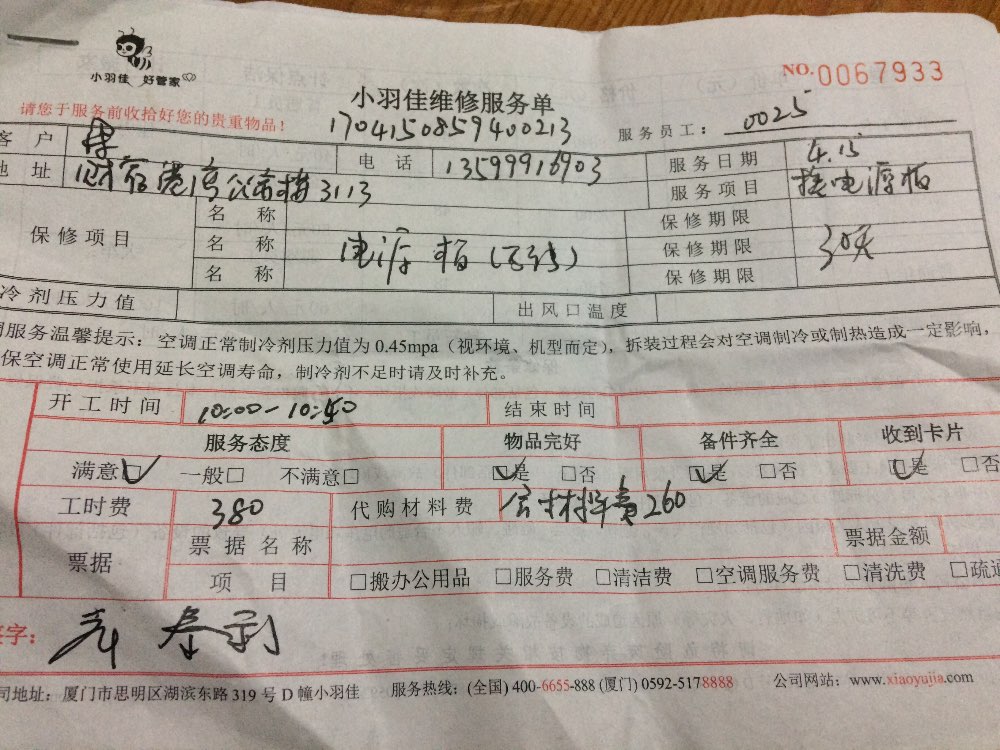 小羽佳 好管家
NO.0067933
请您于服务前收拾好您的贵重物品！
小羽佳维修服务单
1704150859400213
服务员工： 0025
客 户 电 话 13599916903 服务日期 4.15
地 址 3113 服务项目 接电源
保修项目 名 称 保修期限
名 称 电源 保修期限 30天
名 称 保修期限
冷剂压力值 出风口温度
服务温馨提示：空调正常制冷剂压力值为 0.45mpa（视环境、机型而定），拆装过程会对空调制冷或制热造成一定影响，
保空调正常使用延长空调寿命，制冷剂不足时请及时补充。
开工时间 10:00-10:50 结束时间
服务态度 物品完好 备件齐全 收到卡片
满意□ 一般□ 不满意□ □是 □否 □是 □否 □是 □否
工时费 380 代购材料费 含材料费260
票据 票据名称 票据金额
项 目 □搬办公用品 □服务费 □清洁费 □空调服务费 □清洗费 □疏通
签字：
司地址：厦门市思明区湖滨东路 319 号 D 幢小羽佳 服务热线：(全国) 400-6655-888 (厦门) 0592-5178888 公司网站：www.xiaoyujia.com